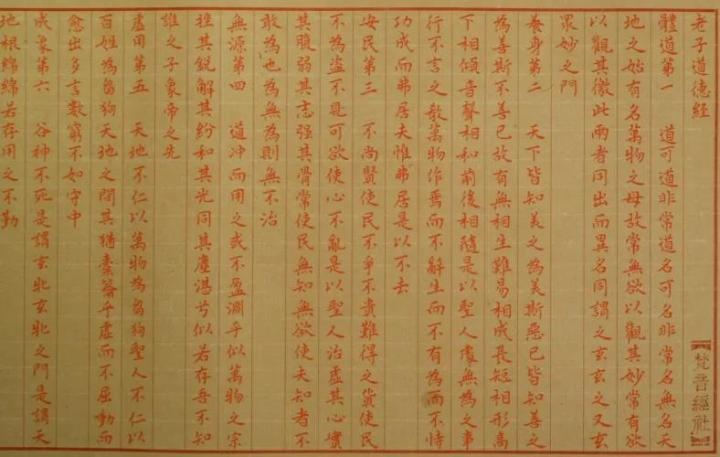 老子道德經
體道第一　道可道非常道名可名非常名無名天
地之始有名萬物之母故常無欲以觀其妙常有欲
以觀其徼此兩者同出而異名同謂之玄玄之又玄
眾妙之門
養身第二　天下皆知美之為美斯惡已皆知善之
為善斯不善已故有無相生難易相成長短相形高
下相傾音聲相和前後相隨是以聖人處無為之事
行不言之教萬物作焉而不辭生而不有為而不恃
功成而弗居夫惟弗居是以不去
安民第三　不尚賢使民不爭不貴難得之貨使民
不為盜不見可欲使心不亂是以聖人治虛其心實
其腹弱其志強其骨常使民無知無欲使夫知者不
敢為也為無為則無不治
無源第四　道沖而用之或不盈淵乎似萬物之宗
挫其銳解其紛和其光同其塵湛兮似若存吾不知
誰之子象帝之先
虛用第五　天地不仁以萬物為芻狗聖人不仁以
百姓為芻狗天地之間其猶橐籥乎虛而不屈動而
愈出多言數窮不如守中
成象第六　谷神不死是謂玄牝玄牝之門是謂天
地根綿綿若存用之不勤
梵音經社